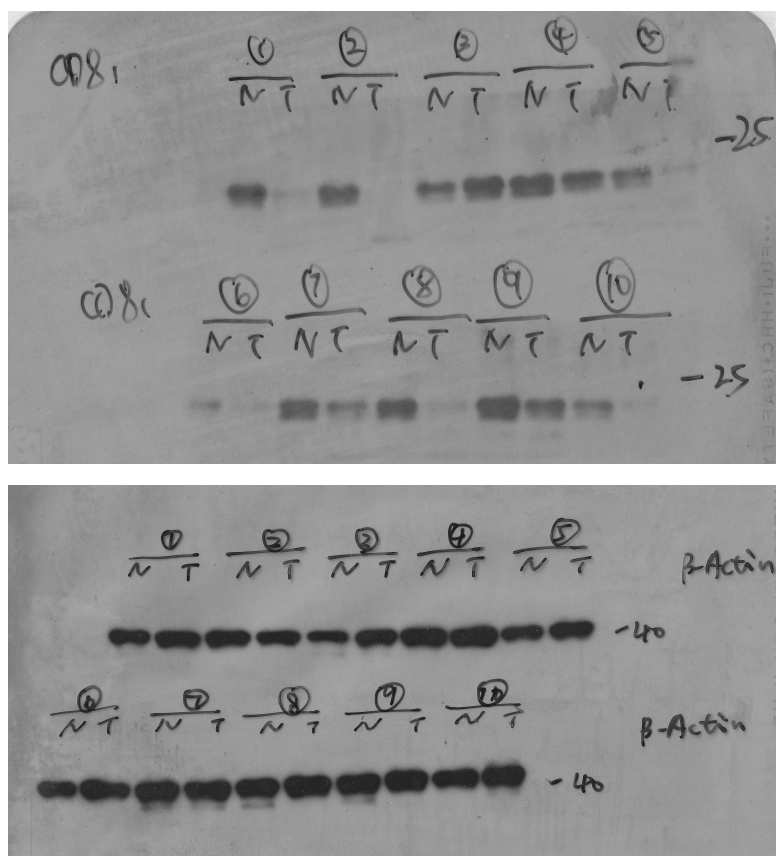 CD81
① ② ③ ④ ⑤
N T N T N T N T N T
-25
CD81
⑥ ⑦ ⑧ ⑨ ⑩
N T N T N T N T N T
-25
① ② ③ ④ ⑤
N T N T N T N T N T
β-Actin
-40
⑥ ⑦ ⑧ ⑨ ⑩
N T N T N T N T N T
β-Actin
-40